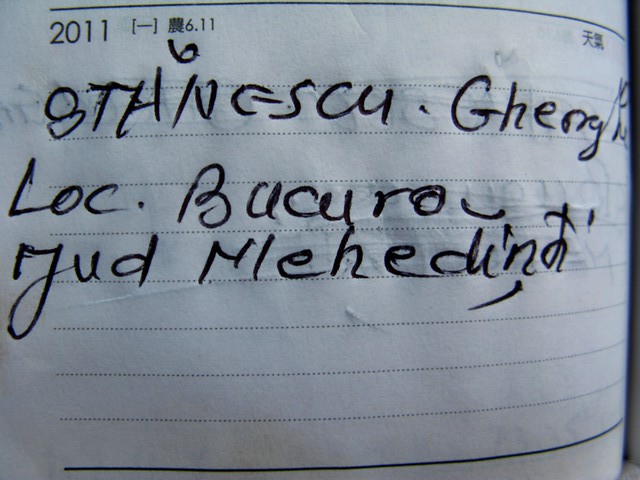 2011 [一] 農6.11 天氣
STĂNESCU. Gheorghe
Loc. Bucura
Jud Mehedinți